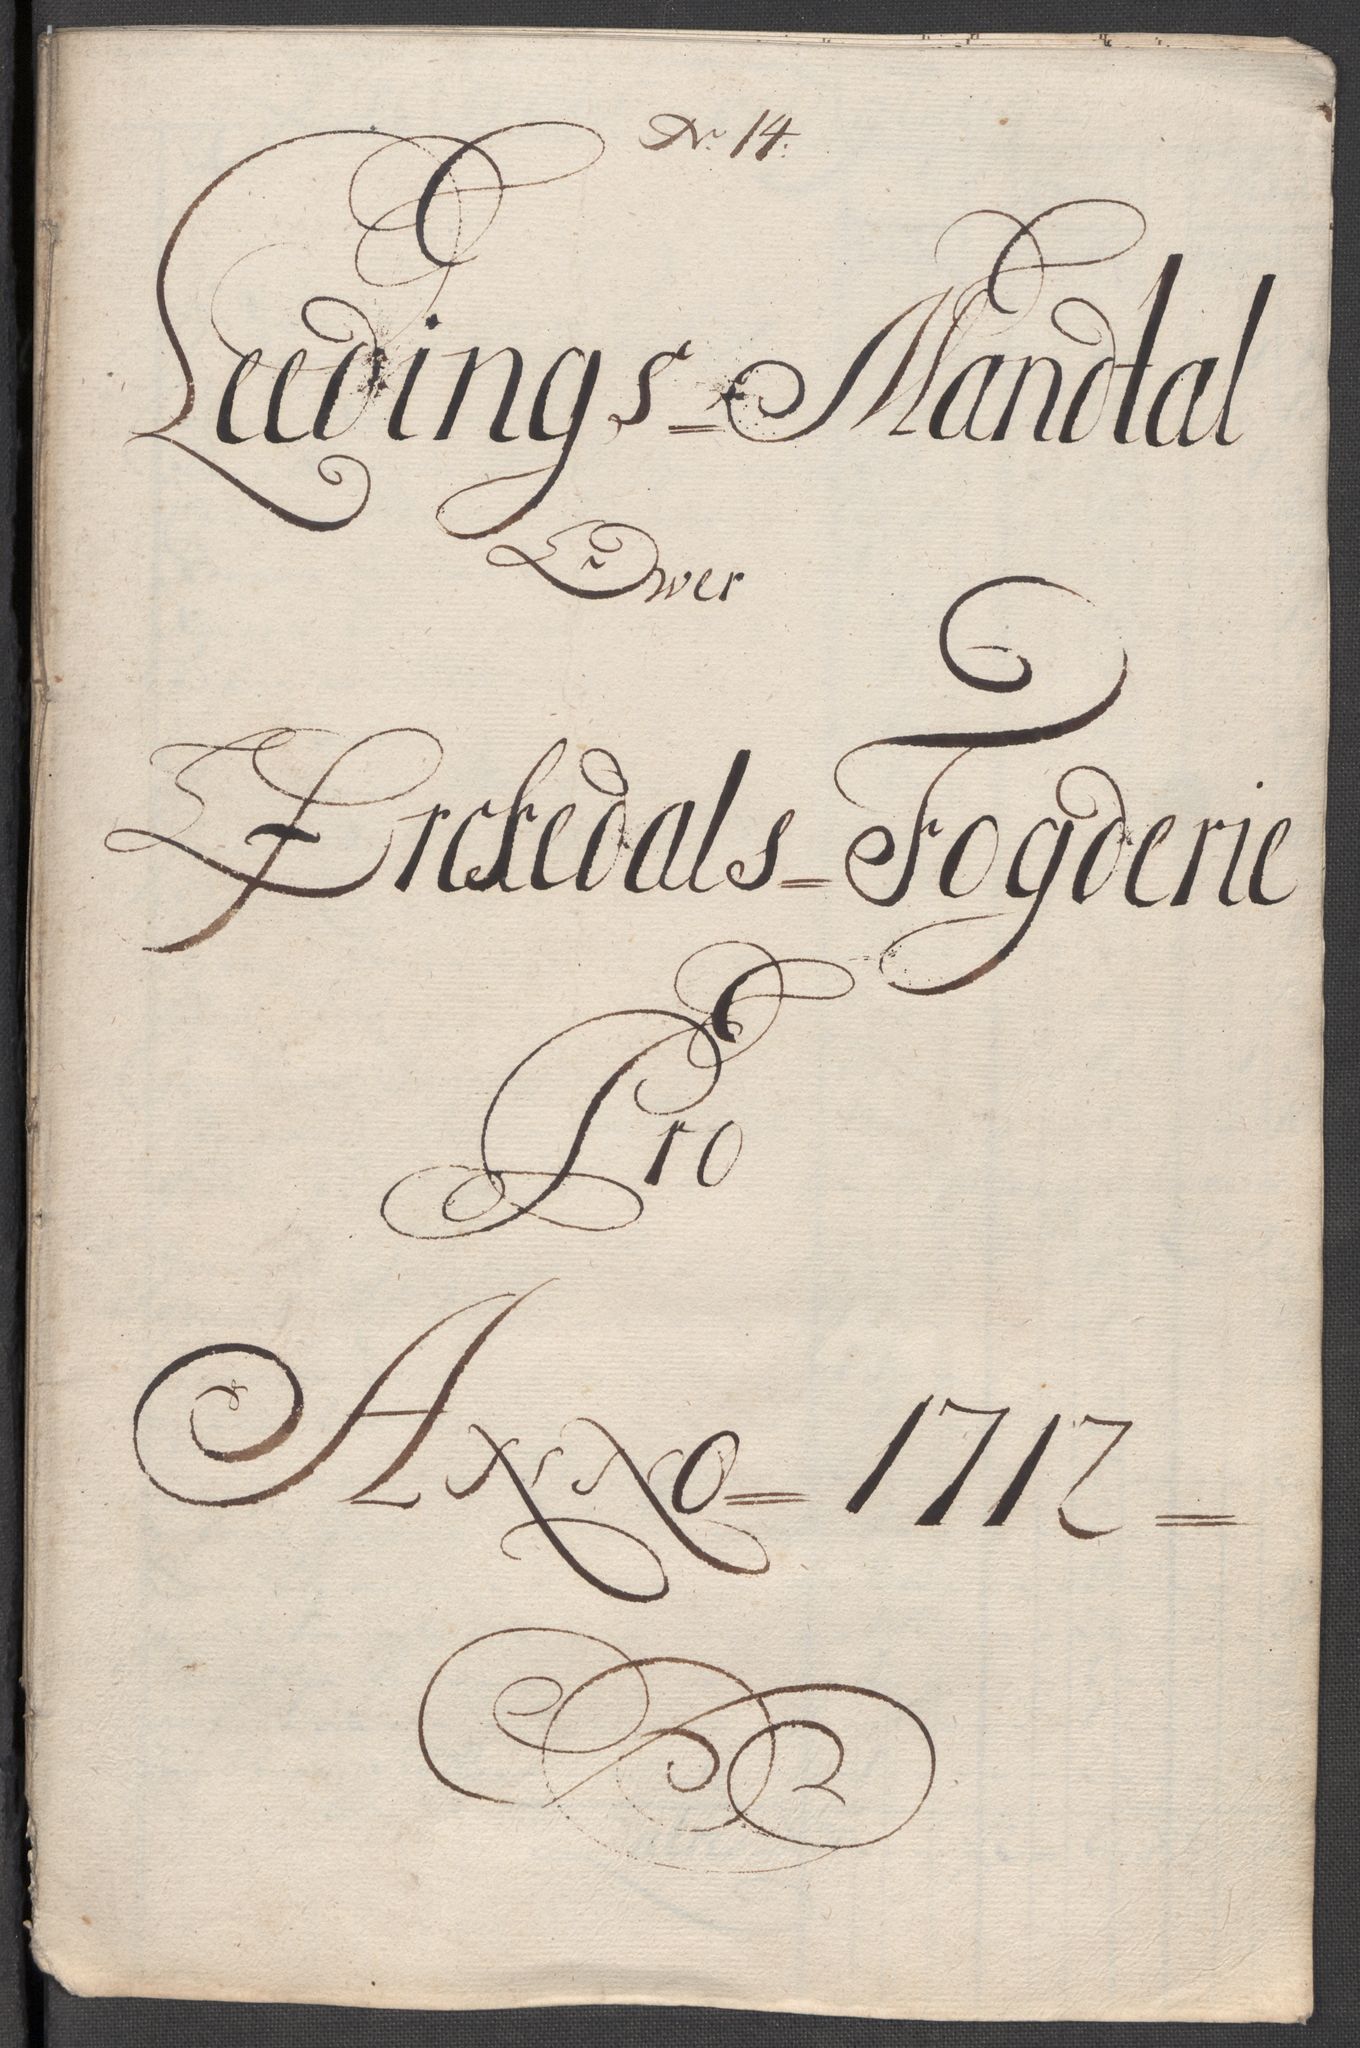 Nr. 14.
Leedings=Mandtal
Ower
Ørckedals=Fogderie
Pro
Anno=1712=